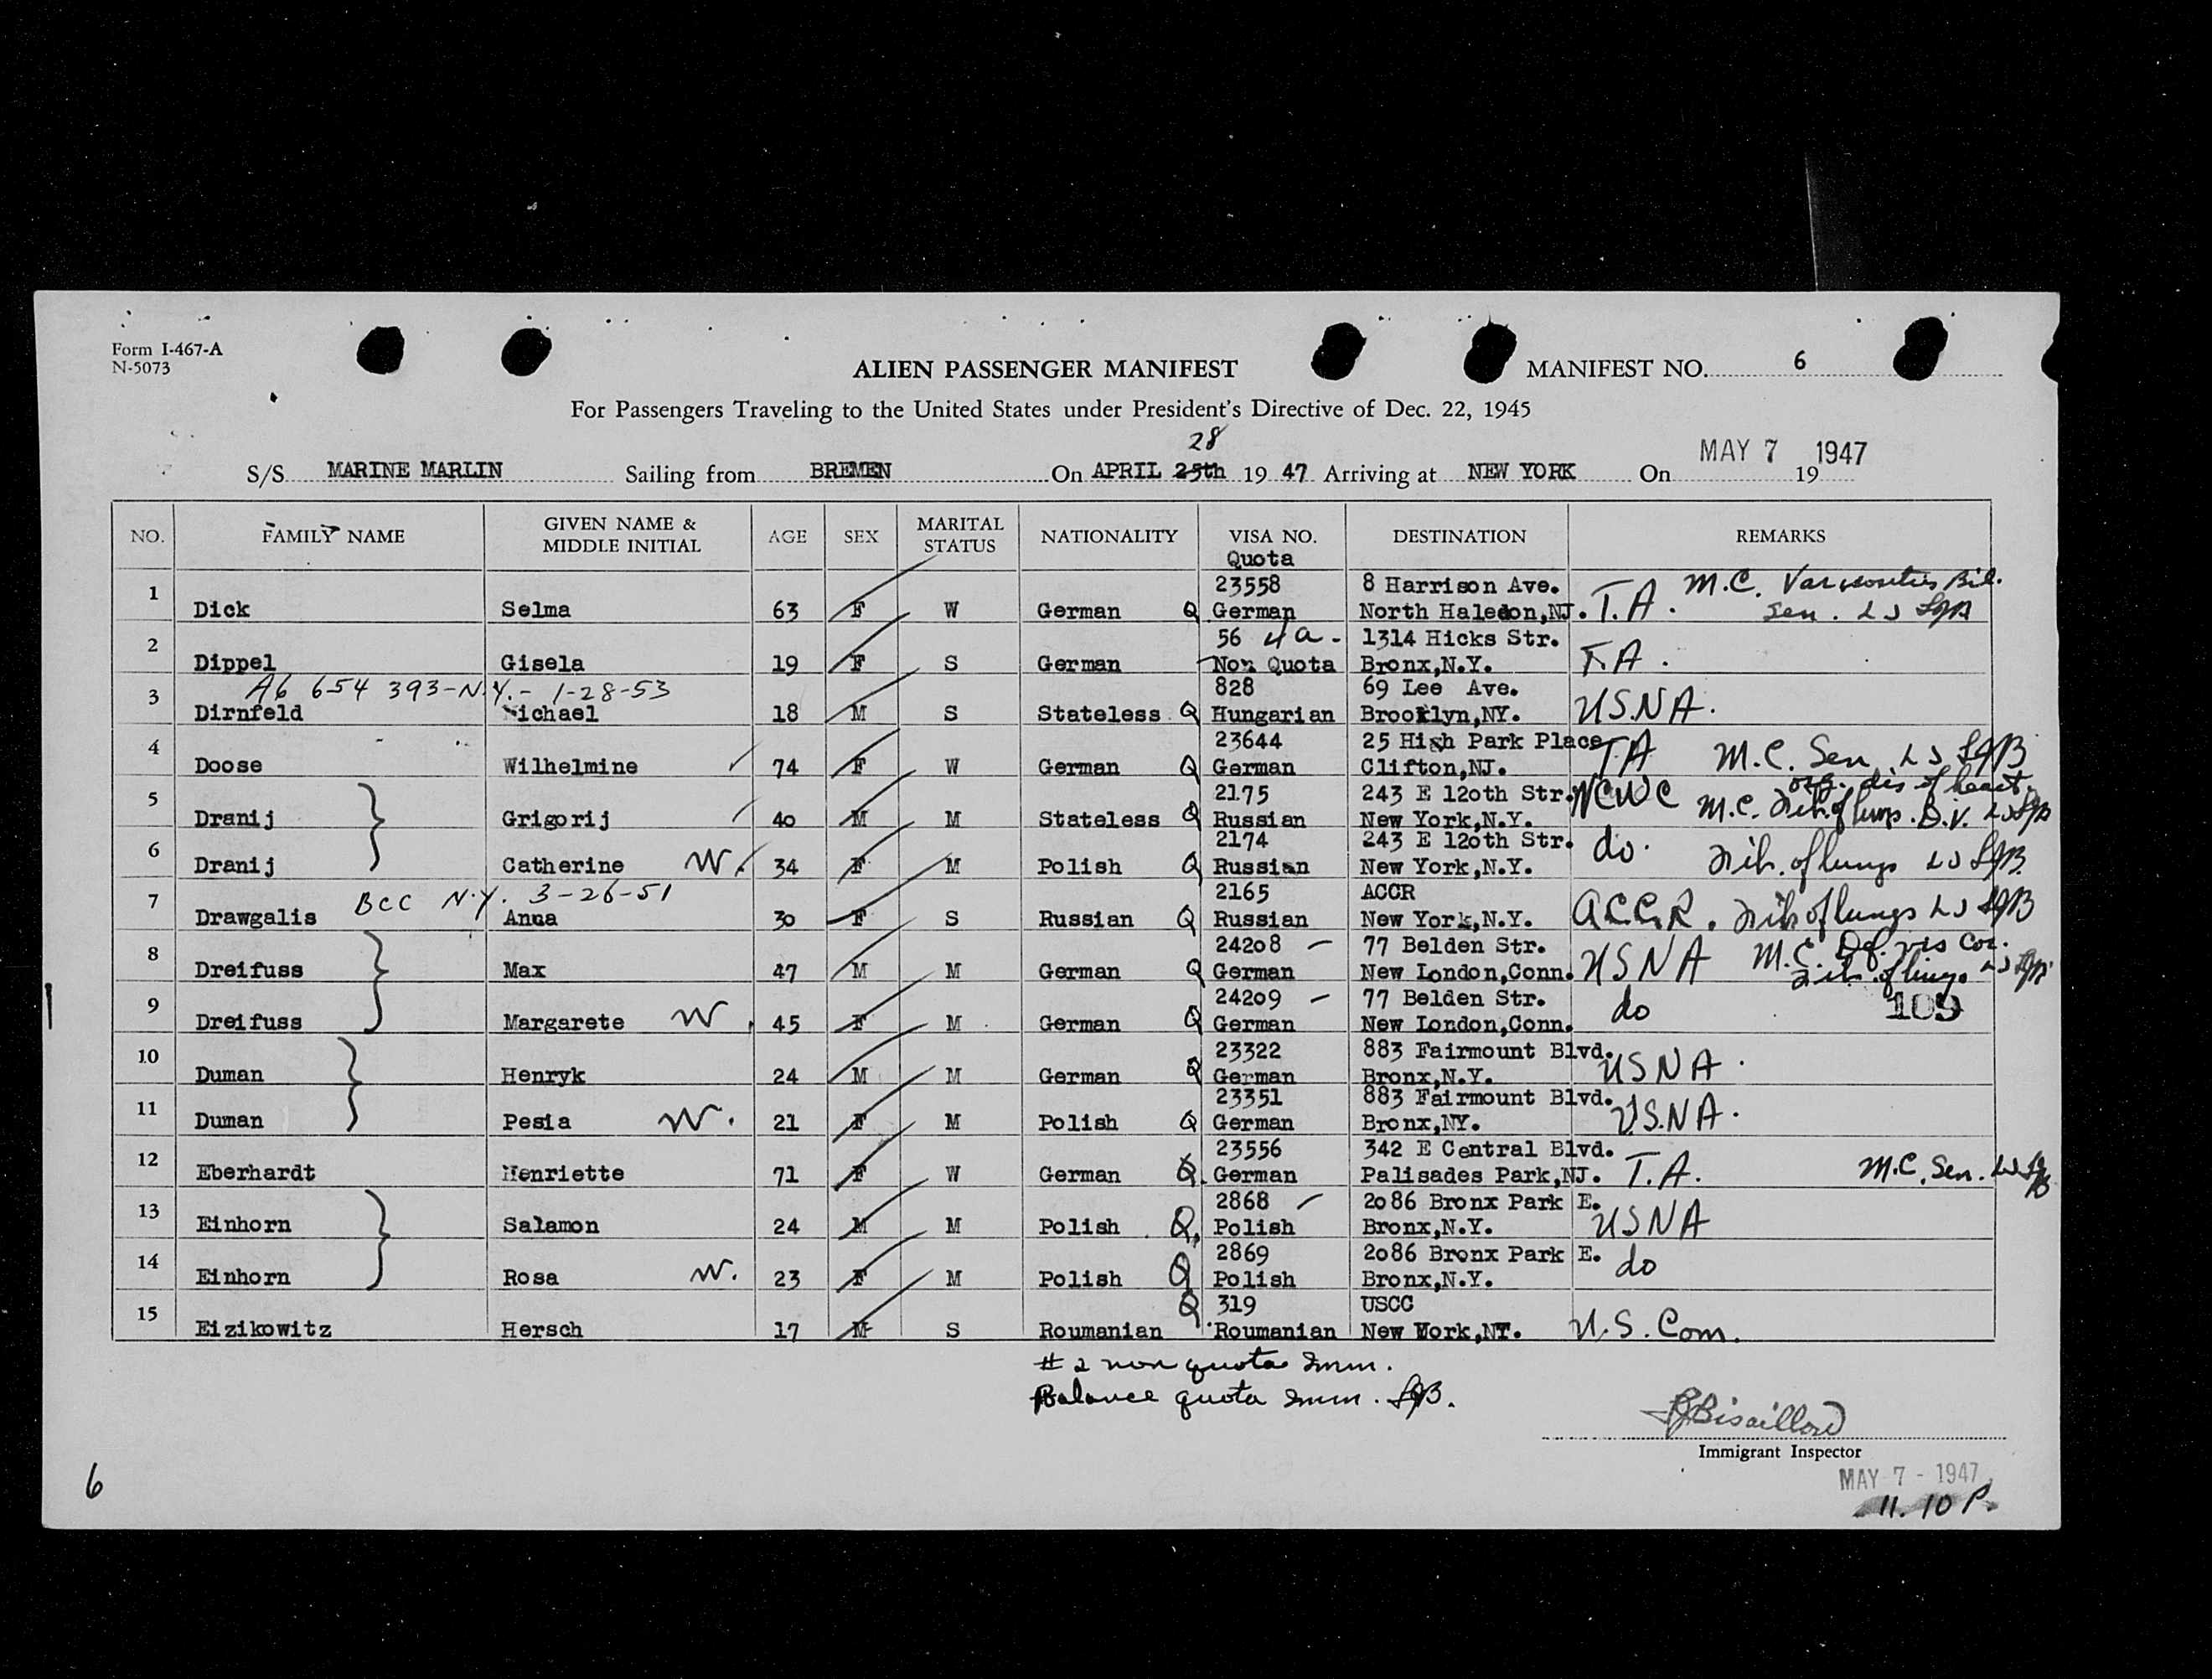 Form I-467-A
N-5073
ALIEN PASSENGER MANIFEST
MANIFEST NO. 6
For Passengers Traveling to the United States under President's Directive of Dec. 22, 1945
28
MAY 7 1947
S/S MARINE MARLIN Sailing from BREMEN On APRIL 25th 19 47 Arriving at NEW YORK On 19
NO. FAMILY NAME GIVEN NAME & MIDDLE INITIAL AGE SEX MARITAL STATUS NATIONALITY VISA NO. DESTINATION REMARKS
Quota
1 23558 8 Harrison Ave. M.C. Bil.
Dick Selma 63 F W German Q German North Haledon,NJ. T.A. Sen.
2 56 4a - 1314 Hicks Str.
Dippel Gisela 19 F S German Non Quota Bronx,N.Y. T.A.
A6 654 393-N.Y.- 1-28-53
3 828 69 Lee Ave.
Dirnfeld Michael 18 M S Stateless Q Hungarian Brooklyn,NY. USNA.
4 23644 25 High Park Place
Doose Wilhelmine 74 F W German Q German Clifton,NJ. TA M.C. Sen
org. dis of heart.
5 2175 243 E 120th Str. NCWC M.C.
Dranij Grigorij 40 M M Stateless Q Russian New York,N.Y.
6 2174 243 E 120th Str. do. of lungs
Dranij Catherine W. 34 F M Polish Q Russian New York,N.Y.
BCC N.Y. 3-26-51
7 2165 ACCR
Drawgalis Anna 30 F S Russian Q Russian New York,N.Y. ACCR. of lungs
8 24208 - 77 Belden Str. M.C. Def. vis Cor.
Dreifuss Max 47 M M German Q German New London,Conn. USNA of lungs
9 24209 - 77 Belden Str. do 109
Dreifuss Margarete W. 45 F M German Q German New London,Conn.
10 23322 883 Fairmount Blvd.
Duman Henryk 24 M M German Q German Bronx,N.Y. USNA.
11 23351 883 Fairmount Blvd.
Duman Pesia W. 21 F M Polish Q German Bronx,NY. U.S.NA.
12 23556 342 E Central Blvd.
Eberhardt Henriette 71 F W German Q. German Palisades Park,NJ. T.A. M.C. Sen.
13 2868 2086 Bronx Park E.
Einhorn Salamon 24 M M Polish Q Polish Bronx,N.Y. USNA
14 2869 2086 Bronx Park E. do
Einhorn Rosa W. 23 F M Polish Q Polish Bronx,N.Y.
15 Q 319 USCC
Eizikowitz Hersch 17 M S Roumanian Roumanian New York,NY. U.S. Com.
# 2 non quota Imm.
Balance quota Imm.
Bisaillon
Immigrant Inspector
MAY 7 - 1947
11.10 P.
6